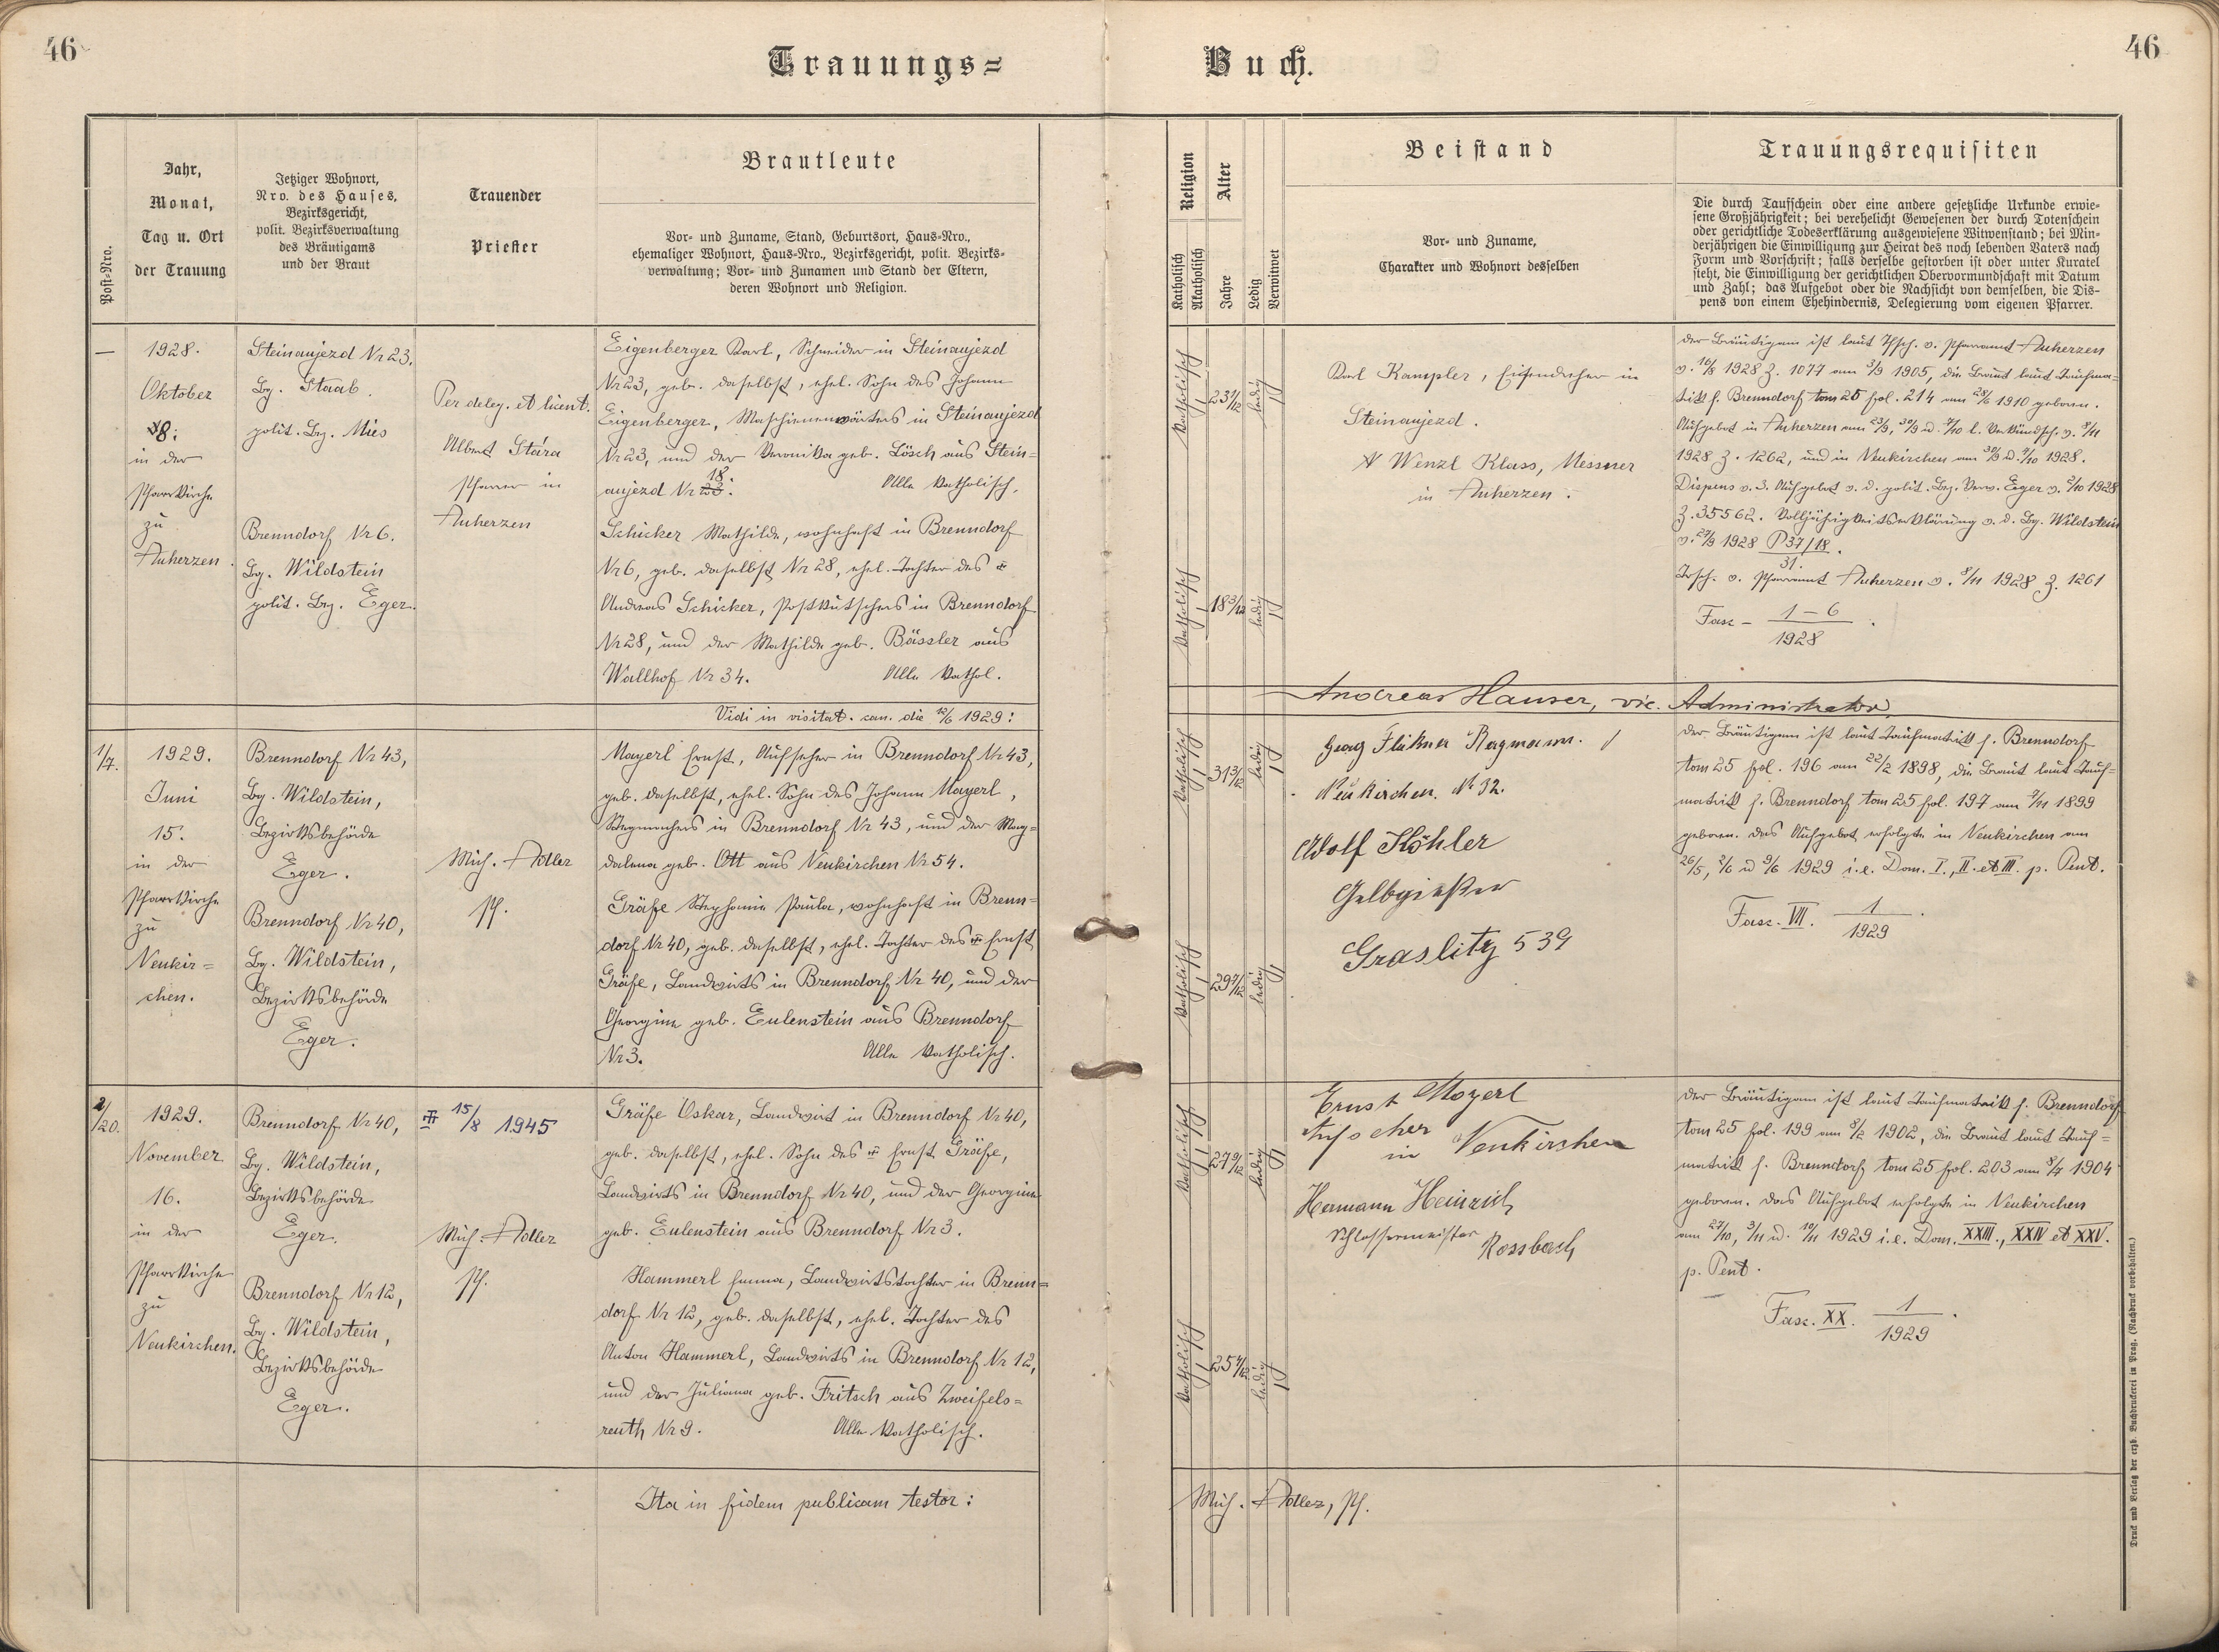 46
Trauungs=
Buch.
46
Post-Nro.
Jahr,
Monat,
Tag u. Ort
der Trauung
Jetziger Wohnort,
Nro. des Hauses,
Bezirksgericht,
polit. Bezirksverwaltung
des Bräutigams
und der Braut
Trauender
Priester
Brautleute
Vor- und Zuname, Stand, Geburtsort, Haus-Nro.,
ehemaliger Wohnort, Haus-Nro., Bezirksgericht, polit. Bezirks-
verwaltung; Vor- und Zunamen und Stand der Eltern,
deren Wohnort und Religion.
Religion
Katholisch
Akatholisch
Alter
Jahre
Ledig
Verwitwet
Beistand
Vor- und Zuname,
Charakter und Wohnort desselben
Trauungsrequisiten
Die durch Taufschein oder eine andere gesetzliche Urkunde erwie-
sene Großjährigkeit; bei verehelicht Gewesenen der durch Totenschein
oder gerichtliche Todeserklärung ausgewiesene Witwenstand; bei Min-
derjährigen die Einwilligung zur Heirat des noch lebenden Vaters nach
Form und Vorschrift; falls derselbe gestorben ist oder unter Kuratel
steht, die Einwilligung der gerichtlichen Obervormundschaft mit Datum
und Zahl; das Aufgebot oder die Nachsicht von demselben, die Dis-
pens von einem Ehehindernis, Delegierung vom eigenen Pfarrer.
—
1928.
Oktober
in der
Pfarrkirche
zu
Auherzen.
Steinaujezd Nr 23,
Bg. Staab.
polit. Bez. Mies
Brenndorf Nr 6.
Bg. Wildstein
polit. Bez. Eger.
Per deleg. et licent.
Albert Stára
Pfarrer in
Auherzen
Eigenberger Karl, Schneider in Steinaujezd
Nr 23, geb. daselbst, ehel. Sohn des Johann
Eigenberger, Maschinenwärters in Steinaujezd
Nr 23, und der Veronika geb. Lösch aus Stein=
18.
aujezd Nr 23. Alle katholisch.
Schicker Mathilde, wohnhaft in Brenndorf
Nr 6, geb. daselbst Nr 28, ehel. Tochter des
Andreas Schicker, Postkutschers in Brenndorf
Nr 28, und der Mathilde geb. Bässler aus
Wallhof Nr 34. Alle kathol.
katholisch
23 1/12
ledig
katholisch
18 3/12
ledig
Karl Kampler, Eisendreher in
Steinaujezd.
Wenzl Klass, Messner
in Auherzen.
Der Bräutigam ist laut Tfsch. v. Pfarramt Auherzen
v. 16/8 1928 Z. 1077 am 3/9 1905, die Braut laut Taufma-
trik f. Brenndorf tom 25 fol. 214 am 28/6 1910 geboren.
Aufgebot in Auherzen am 23/9, 30/9 u. 7/10 l. Verkündsch. v. 8/11
1928 Z. 1262, und in Neukirchen am 30/9 u. 7/10 1928.
Dispens v. 3. Aufgebot v. d. polit. Bez. Verw. Eger v. 5/10 1928
Z. 35562. Volljährigkeitserklärung v. d. Bg. Wildstein
v. 27/9 1928 P 37/18.
31.
Trsch. v. Pfarramt Auherzen v. 8/11 1928 Z. 1261
Fasc – 1–6
1928
Vidi in visitat. can. die 12/6 1929:
Andreas Hauser, vic. Administrator
1/7.
1929.
Juni
15.
in der
Pfarrkirche
zu
Neukir=
chen.
Brenndorf Nr 43,
Bg. Wildstein,
Bezirksbehörde
Eger.
Brenndorf Nr 40,
Bg. Wildstein,
Bezirksbehörde
Eger.
Mich. Adler
Pf.
Mayerl Ernst, Aufseher in Brenndorf Nr 43,
geb. daselbst, ehel. Sohn des Johann Mayerl,
Stegmachers in Brenndorf Nr 43, und der Mag=
dalena geb. Ott aus Neukirchen Nr 54.
Gräfe Stephanie Paula, wohnhaft in Brenn=
dorf Nr 40, geb. daselbst, ehel. Tochter des Ernst
Gräfe, Landwirts in Brenndorf Nr 40, und der
Georgine geb. Eulenstein aus Brenndorf
Nr 3. Alle katholisch.
katholisch
31 3/12
ledig
katholisch
29 7/12
ledig
Georg
Neukirchen. N 32.
Adolf Köhler
Gelbgießer
Graslitz 539
Der Bräutigam ist laut Taufmatrik f. Brenndorf
tom 25 fol. 196 am 22/2 1898, die Braut laut Tauf=
matrik f. Brenndorf tom 25 fol. 197 am 7/11 1899
geboren. Das Aufgebot erfolgte in Neukirchen am
26/5, 2/6 u 9/6 1929 i.e. Dom. I., II. et III. p. Pent.
Fasc. VII. 1
1929
2/20.
1929.
November
16.
in der
Pfarrkirche
zu
Neukirchen.
Brenndorf Nr 40,
Bg. Wildstein,
Bezirksbehörde
Eger.
Brenndorf Nr 12,
Bg. Wildstein,
Bezirksbehörde
Eger.
15/8 1945
Mich. Adler
Pf.
Gräfe Oskar, Landwirt in Brenndorf Nr 40,
geb. daselbst, ehel. Sohn des Ernst Gräfe,
Landwirts in Brenndorf Nr 40, und der Georgine
geb. Eulenstein aus Brenndorf Nr 3.
Hammerl Emma, Landwirtstochter in Brenn=
dorf Nr 12, geb. daselbst, ehel. Tochter des
Anton Hammerl, Landwirts in Brenndorf Nr 12,
und der Juliana geb. Fritsch aus Zweifels=
reuth Nr 9. Alle katholisch.
katholisch
27 9/12
ledig
katholisch
25 4/12
ledig
Ernst Mayerl
Aufseher
in Neukirchen
Hermann Heinrich
Schlossermeister
Rossbach
Der Bräutigam ist laut Taufmatrik f. Brenndorf
tom 25 fol. 199 am 8/2 1902, die Braut laut Tauf=
matrik f. Brenndorf tom 25 fol. 203 am 8/7 1904
geboren. Das Aufgebot erfolgte in Neukirchen
am 27/10, 3/11 u. 10/11 1929 i.e. Dom. XXIII., XXIV et XXV.
p. Pent.
Fasc. XX. 1
1929
Ita in fidem publicam testor:
Mich. Adler, Pf.
Druck und Verlag der erzb. Buchdruckerei in Prag. (Nachdruck vorbehalten.)